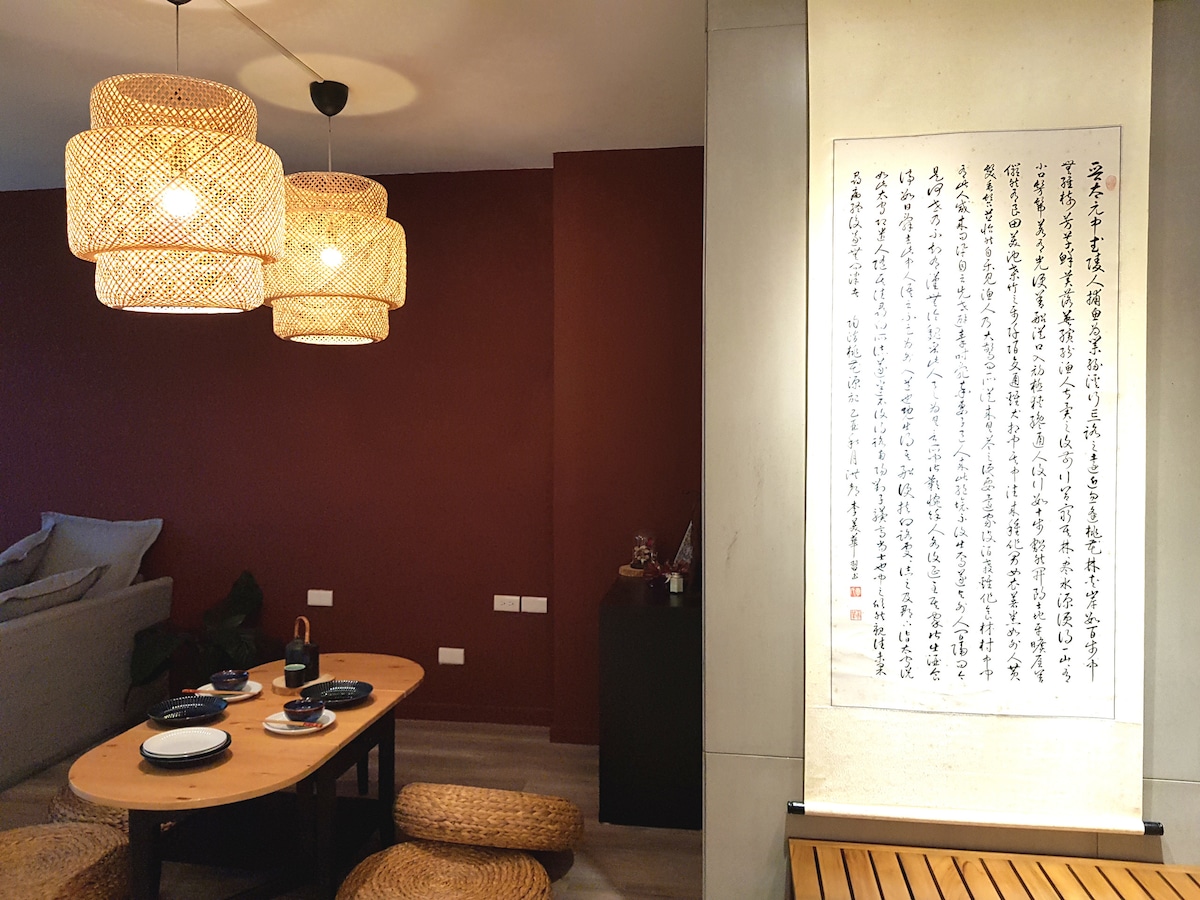 晉太元中武陵人捕魚為業緣溪行忘路之遠近忽逢桃花林夾岸數百步中
無雜樹芳草鮮美落英繽紛漁人甚異之復前行欲窮其林林盡水源便得一山山有
小口髣髴若有光便舍船從口入初極狹纔通人復行數十步豁然開朗土地平曠屋舍
儼然有良田美池桑竹之屬阡陌交通雞犬相聞其中往來種作男女衣著悉如外人黃
髮垂髫並怡然自樂見漁人乃大驚問所從來具答之便要還家設酒殺雞作食村中聞
有此人咸來問訊自云先世避秦時亂率妻子邑人來此絕境不復出焉遂與外人間隔問今
是何世乃不知有漢無論魏晉此人一一為具言所聞皆歎惋餘人各復延至其家皆出酒食
停數日辭去此中人語云不足為外人道也既出得其船便扶向路處處誌之及郡下詣太守說
如此太守即遣人隨其往尋向所誌遂迷不復得路南陽劉子驥高尚士也聞之欣然規往未果
尋病終後遂無問津者 陶潛桃花源記 乙亥秋月 李美華習書